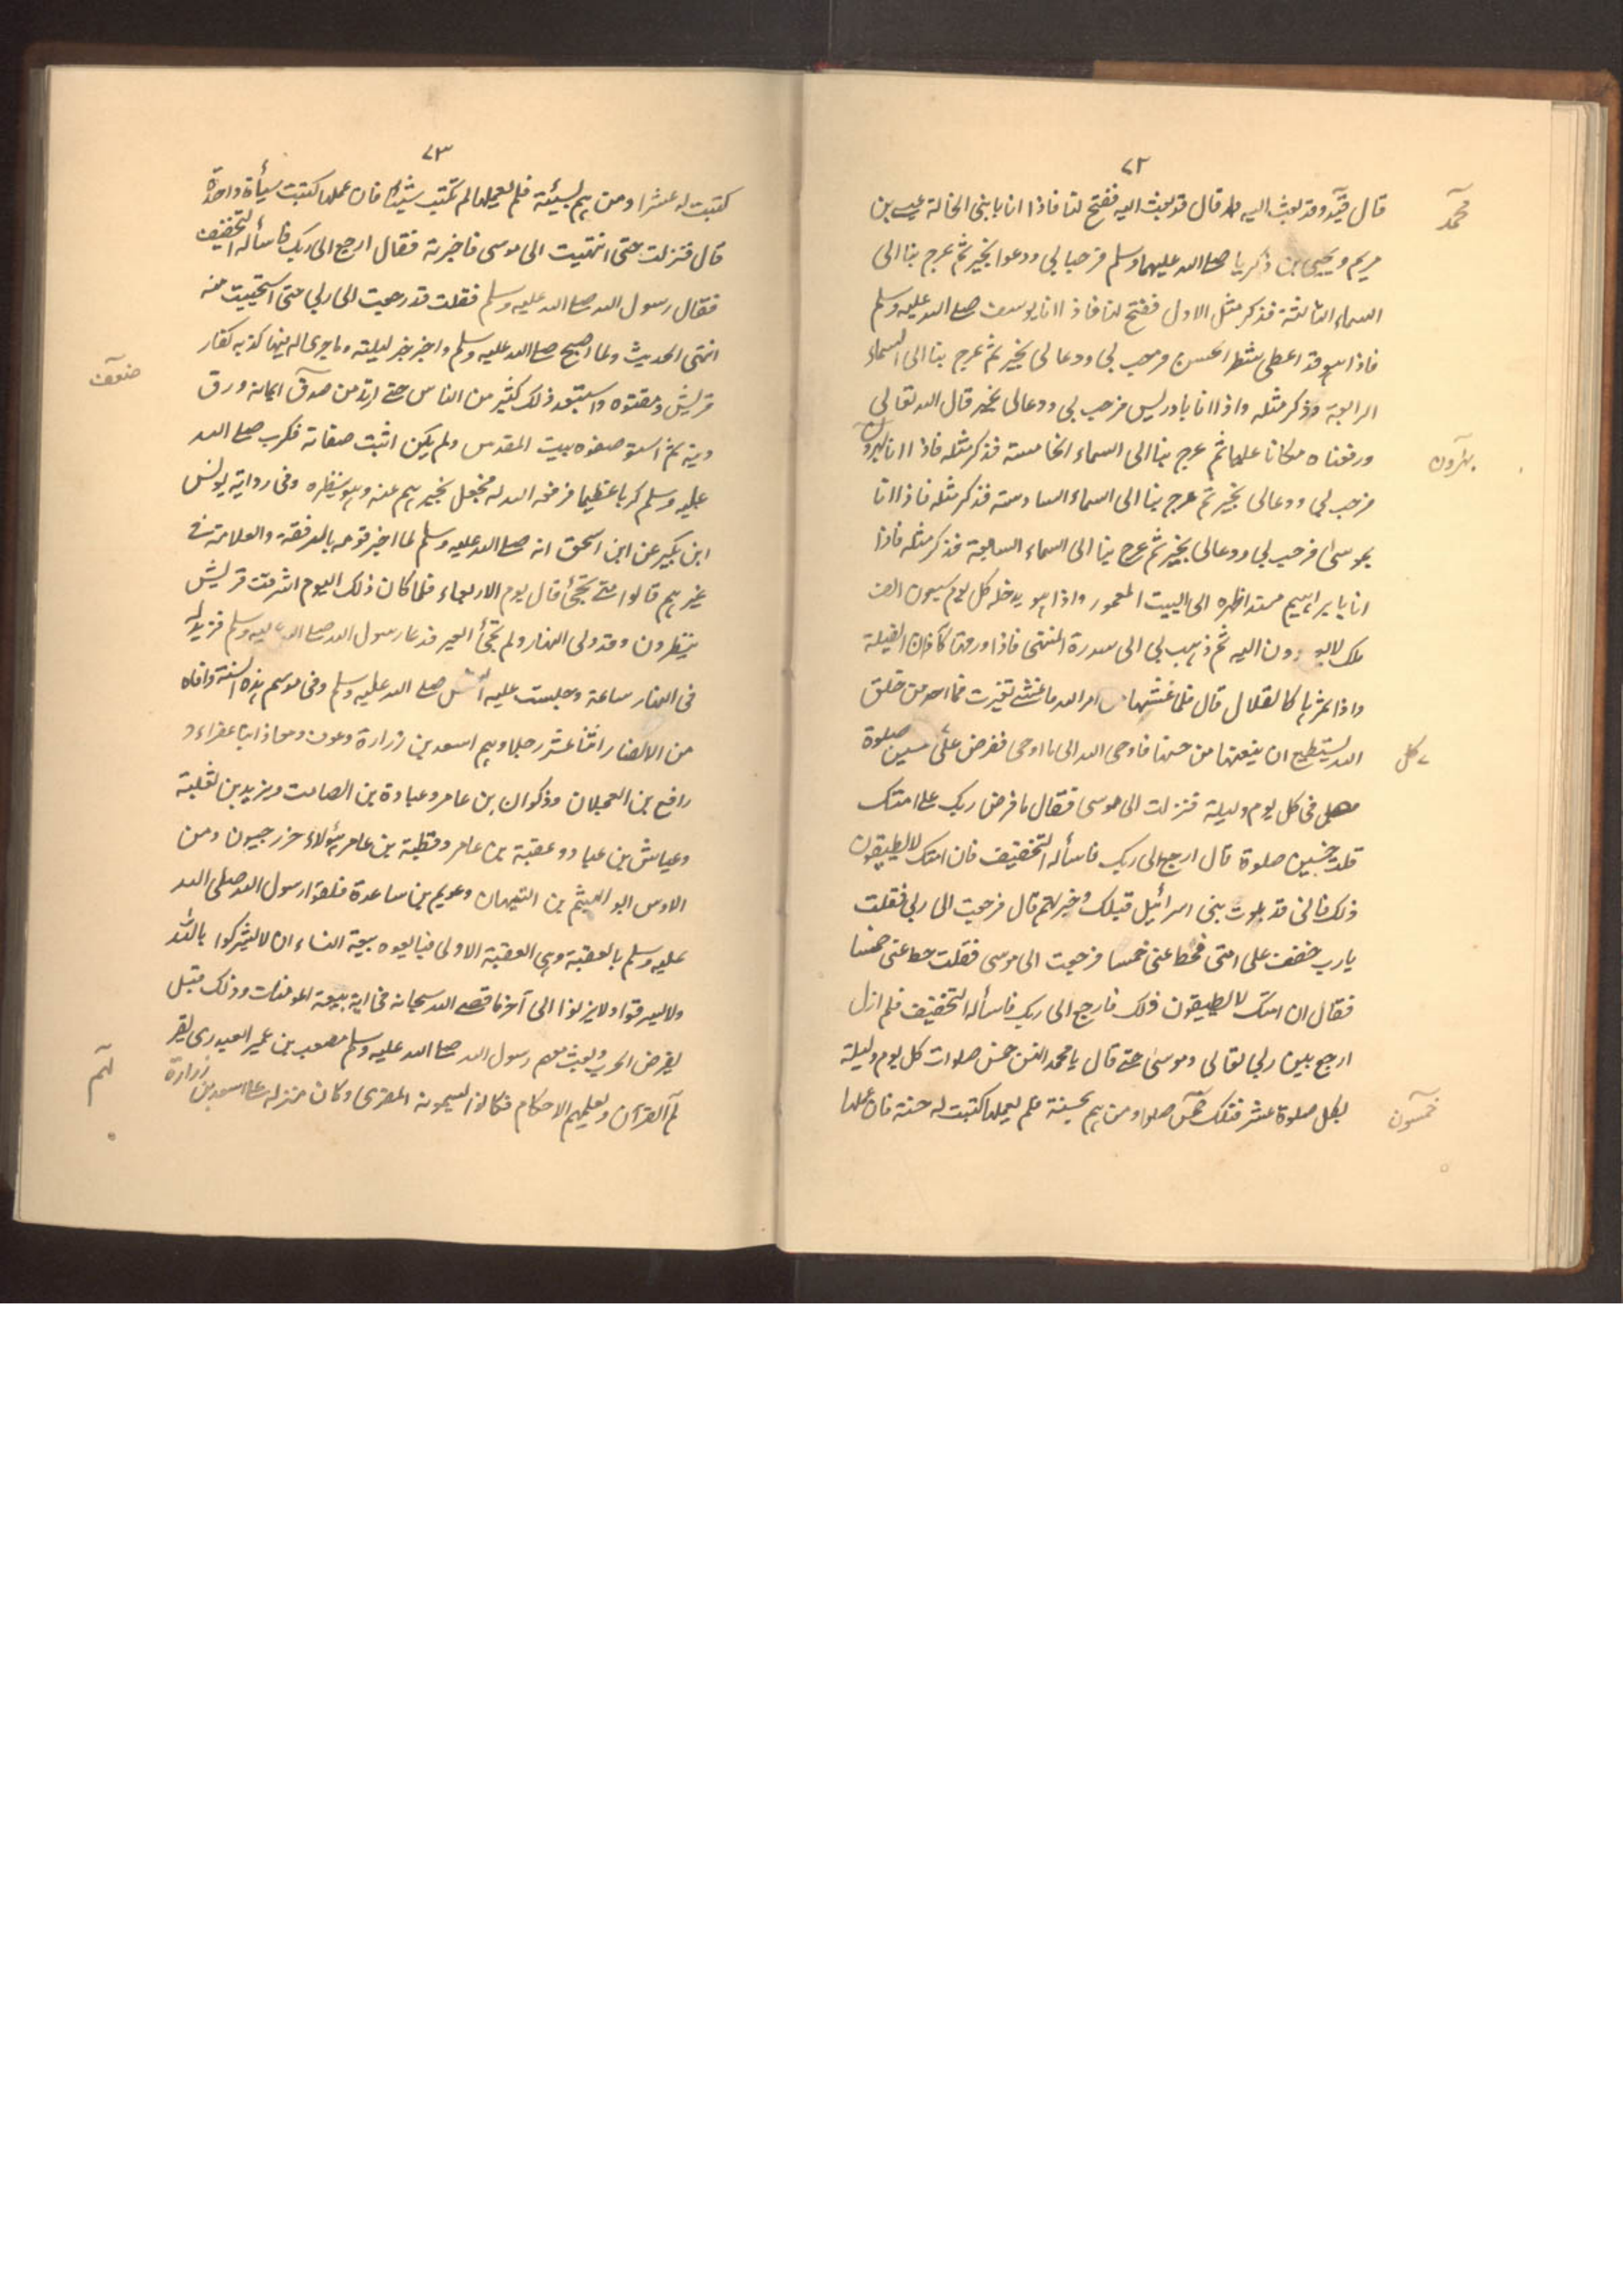 ٧٢
قال محمد قيل وقد بعث اليه قال قد بعث اليه ففتح لنا فاذا انا بابنى الخالة عيسى بن
مريم ويحيى بن ذكريا صلى الله عليهما وسلم فرحبا بى ودعوا بخير ثم عرج بنا الى
السماء الثالثة فذكر مثل الاول ففتح لنا فاذا انا يوسف صلى الله عليه وسلم
فاذا هو قد اعطى شطر الحسن فرحب بى ودعا لى بخير ثم عرج بنا الى السماء
الرابعة وذكر مثله واذا انا بادريس فرحب بى ودعا لى بخير قال الله تعالى
ورفعناه مكانا عليا ثم عرج بنا الى السماء الخامسة فذكر مثله فاذا انا بهرون
فرحب بى ودعا لى بخير ثم عرج بنا الى السماء السادسة فذكر مثله فاذا انا
بموسى فرحب بى ودعا لى بخير ثم عرج بنا الى السماء السابعة فذكر مثله فاذا
انا بابراهيم مسندا ظهره الى البيت المعمور واذا هو يدخله كل يوم سبعون الف
ملك لا يعودون اليه ثم ذهب بى الى سدرة المنتهى فاذا ورقها كآذان الفيلة
واذا ثمرها كالقلال قال فلما غشيها من امر الله ما غشى تغيرت فما احد من خلق
الله يستطيع ان ينعتها من حسنها فاوحى الله الى ما اوحى ففرض على خمسين صلوة
فى كل يوم وليلة فنزلت الى موسى فقال ما فرض ربك على امتك
قلت خمسين صلوة قال ارجع الى ربك فاسأله التخفيف فان امتك لا يطيقون
ذلك فانى قد بلوت بنى اسرائيل قبلك وخبرتهم قال فرجعت الى ربى فقلت
يا رب خفف على امتى فحط عنى خمسا فرجعت الى موسى فقلت حط عنى خمسا
فقال ان امتك لا يطيقون ذلك فارجع الى ربك فاسأله التخفيف فلم ازل
ارجع بين ربى تعالى وموسى حتى قال يا محمد انهن خمس صلوات كل يوم وليلة
لكل صلوة عشر فتلك خمسون صلوة ومن هم بحسنة فلم يعملها كتبت له حسنة فان عملها
محمد
بهرون
كل
خمسون
٧٣
كتبت له عشرا ومن هم بسيئة فلم يعملها لم تكتب شيئا فان عملها كتبت سيأة واحدة
قال فنزلت حتى انتهيت الى موسى فاخبرته فقال ارجع الى ربك فاسأله التخفيف
فقال رسول الله صلى الله عليه وسلم فقلت قد رجعت الى ربى حتى استحييت منه
انتهى الحديث ولما اصبح صلى الله عليه وسلم واخبر خبر ليلته وما جرى له فيها كذبه كفار
قريش ومقتوه واستبعد ذلك كثير من الناس حتى ارتد من ضعف ايمانه ورق
دينه ثم استوصفوه بيت المقدس ولم يكن اثبت صفاته فكرب صلى الله
عليه وسلم كربا عظيما فرفعه الله له فجعل يخبرهم عنه وهو ينظره وفى رواية يونس
ابن بكير عن ابن اسحق انه صلى الله عليه وسلم لما اخبر قومه بالرفقة والعلامة فى
عيرهم قالوا متى تجئ قال يوم الاربعاء فلما كان ذلك اليوم اشرفت قريش
ينظرون وقد ولى النهار ولم تجئ العير فدعا رسول الله صلى الله عليه وسلم فزيد له
فى النهار ساعة وحبست عليه الشمس صلى الله عليه وسلم وفى موسم هذه السنة وافاه
من الانصار اثنا عشر رجلا وهم اسعد بن زرارة وعوف ومعاذ ابنا عفراء و
رافع بن العجلان وذكوان بن عامر وعبادة بن الصامت ويزيد بن ثعلبة
وعباس بن عبادو وعقبة بن عامر وقطبة بن عامر هؤلاء خزرجيون ومن
الاوس ابو الهيثم بن التيهان وعويم بن ساعدة فلقوا رسول الله صلى الله
عليه وسلم بالعقبة وهى العقبة الاولى فبايعوه بيعة النساء ان لا يشركوا بالله
ولا يسرقوا ولا يزنوا الى آخر ما قصه الله سبحانه فى اية بيعة المومنات وذلك قبل
يفرض الحرب وبعث معهم رسول الله صلى الله عليه وسلم مصعب بن عمير العبدرى يقر
لهم القرآن ويعلمهم الاحكام فكانوا يسمونه المقرى وكان منزله على اسعد بن زرارة
ضعف
لهم